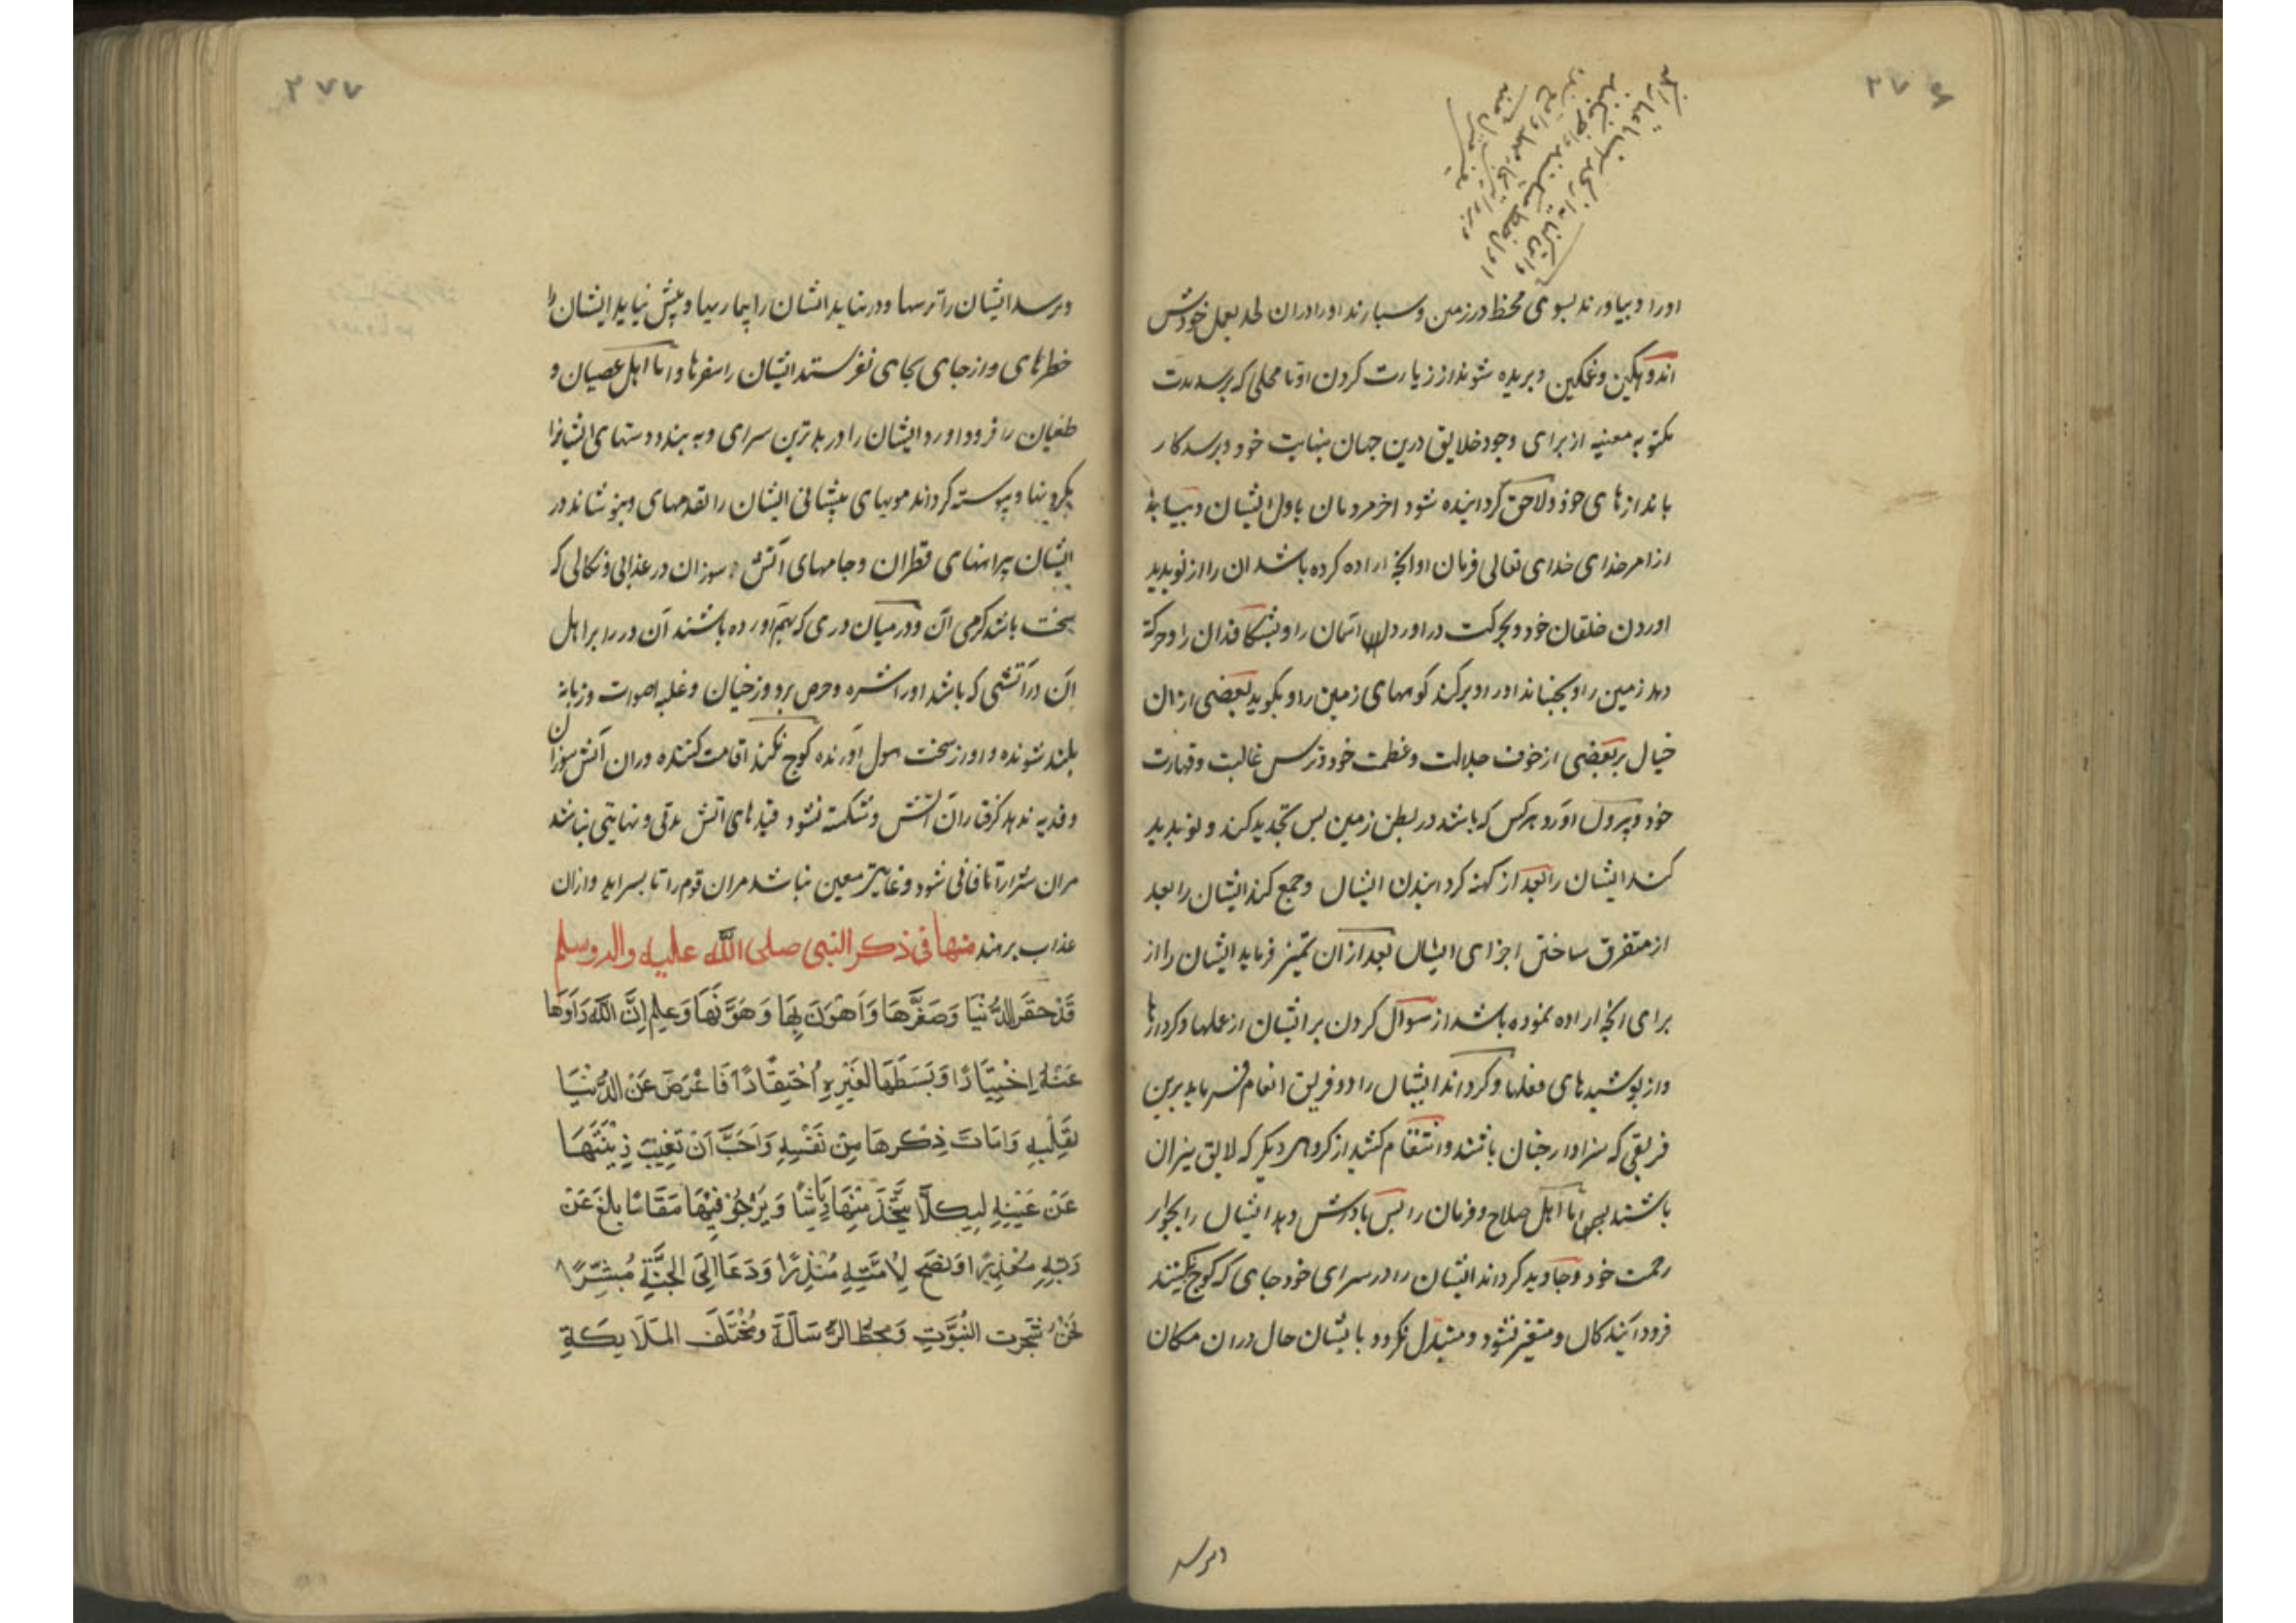 ۲۷۶
اورا و بیاورند بسوی محظ در زمین و سپارند اورا دران لحد بعمل خودش
اندوهگین و غمگین و بریده شوند از زیارت کردن او تا محلی که برسد مدت
مکتوبه معینه از برای وجود خلایق درین جهان بنهایت خود و برسد کار
باندازهای خود و لاحق گردانیده شود اخر مردمان باول ایشان و بیاید
از امر خدای تعالی فرمان او انچه اراده کرده باشد ان را از نو پدید
اوردن خلقان خود و بحرکت دراورد اسمان را و بشکافد ان را و حرکة
دهد زمین را و بجنباند اورا و برکند کوههای زمین را و بکوبد بعضی ازان
خیال بر بعضی از خوف جلالت و عظمت خود و ترس غالبت و قهارت
خود و بیرون اورد هر کس که باشد در بطن زمین پس تجدید کند و نو پدید
کند ایشان را بعد از کهنه گردانیدن ایشان و جمع کند ایشان را بعد
از متفرق ساختن اجزای ایشان بعد ازان تمیز فرماید ایشان را از
برای انچه اراده نموده باشد از سوال کردن بر ایشان از عملها و کردارها
و از پوشیدهای فعلها و گرداند ایشان را دو فریق انعام فرماید برین
فریقی که سزاوار جنان باشند و انتقام کشد از گروهی دیگر که لایق نیران
باشند اما اهل صلاح و فرمان را پس پاداش دهد ایشان را بجوار
رحمت خود و جاوید گرداند ایشان را در سرای خود جای که کوچ نکنند
فرود آیندکان و متغیر نشود و متبدل نگردد بایشان حال دران مکان
و نرسد
۲۷۷
و نرسد ایشان را ترسها و درنیاید ایشان را بیماریها و پیش نیاید ایشان را
خطرهای و از جای بجای نفرستد ایشان را سفرها و اما اهل عصیان و
طغیان را فرود اورد ایشان را در بدترین سرای و به بندد دستهای ایشانرا
بگردنها و پیوسته گرداند مویهای پیشانی ایشان را بقدمهای و بپوشاند در
ایشان پیراهنهای قطران و جامهای آتش سوزان در عذابی و نکالی که
سخت باشد گرمی آن و در میان دری که بهم اورده باشند آن در را بر اهل
ان در آتشی که باشد اورا شره و حرص برد و زخیان و غلبه اصوات و زبانه
بلند شونده و اواز سخت هول آورنده کوچ نکند اقامت کننده دران آتش سوزان
و فدیه ندهد گرفتاران آتش و شکسته نشود قیدهای اتش مدتی و نهایتی نباشد
مران سرا را تا فانی شود و غایتی معین نباشد مران قوم را تا بسراید و ازان
عذاب برهند منها فی ذکر النبی صلی الله علیه واله وسلم
قَدْ حقَرَ الدُّنْیَا وَصَغَّرَهَا وَاَهْوَنَ بِهَا وَهَوَّنَهَا وَعلِم اِنَّ اللهَ زَاوَها
عَنْهُ اِخْتِیَارًا وَبَسَطَهَا لِغَیْرِهِ اُحْتِقَارًا فَاعْرَضَ عَنْ الدُّنْیَا
بقَلْبِهِ وَاَمَاتَ ذِکْرهَا مِنْ نَفْسِهِ وَاَحَبَّ اَنْ تَغِیْبَ زِیْنَتهَا
عَنْ عَیْنِهِ لِیکلَّا یَتَّخِذَ مِنْهَا رِیَاشًا وَیَرْجُوْ فِیْهَا مَقَامًا بلغَ عَنْ
رَبّهِ مُعْذِرًا وَنصَحَ لِاُمَّتِهِ مُنْذِرًا وَدَعَا اِلَی الجَنَّةِ مُبَشِّرًا
نَحْنُ شَجَرت النُّبُوَّتِ وَمحطُّ الرِّسَالَة وَمُخْتَلَفَ المَلَایکَةِ